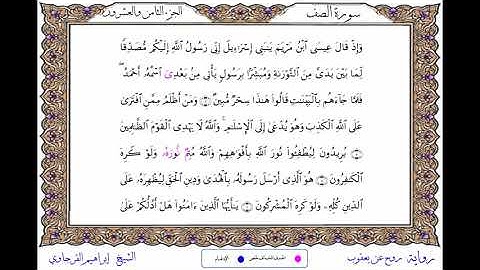 سورة الصف
الجزء الثامن والعشرون
وَإِذْ قَالَ عِيسَى ٱبْنُ مَرْيَمَ يَٰبَنِىٓ إِسْرَٰٓءِيلَ إِنِّى رَسُولُ ٱللَّهِ إِلَيْكُم مُّصَدِّقًا
لِّمَا بَيْنَ يَدَىَّ مِنَ ٱلتَّوْرَىٰةِ وَمُبَشِّرًۢا بِرَسُولٍ يَأْتِى مِنۢ بَعْدِىَ ٱسْمُهُۥٓ أَحْمَدُ
فَلَمَّا جَآءَهُم بِٱلْبَيِّنَٰتِ قَالُوا۟ هَٰذَا سِحْرٌ مُّبِينٌ ۝ وَمَنْ أَظْلَمُ مِمَّنِ ٱفْتَرَىٰ
عَلَى ٱللَّهِ ٱلْكَذِبَ وَهُوَ يُدْعَىٰٓ إِلَى ٱلْإِسْلَٰمِ وَٱللَّهُ لَا يَهْدِى ٱلْقَوْمَ ٱلظَّٰلِمِينَ
۝ يُرِيدُونَ لِيُطْفِـُٔوا۟ نُورَ ٱللَّهِ بِأَفْوَٰهِهِمْ وَٱللَّهُ مُتِمٌّ نُورَهُۥ وَلَوْ كَرِهَ
ٱلْكَٰفِرُونَ ۝ هُوَ ٱلَّذِىٓ أَرْسَلَ رَسُولَهُۥ بِٱلْهُدَىٰ وَدِينِ ٱلْحَقِّ لِيُظْهِرَهُۥ عَلَى
ٱلدِّينِ كُلِّهِۦ وَلَوْ كَرِهَ ٱلْمُشْرِكُونَ ۝ يَٰٓأَيُّهَا ٱلَّذِينَ ءَامَنُوا۟ هَلْ أَدُلُّكُمْ عَلَىٰ
رواية روح عن يعقوب
الشيخ إبراهيم الفرجاوي